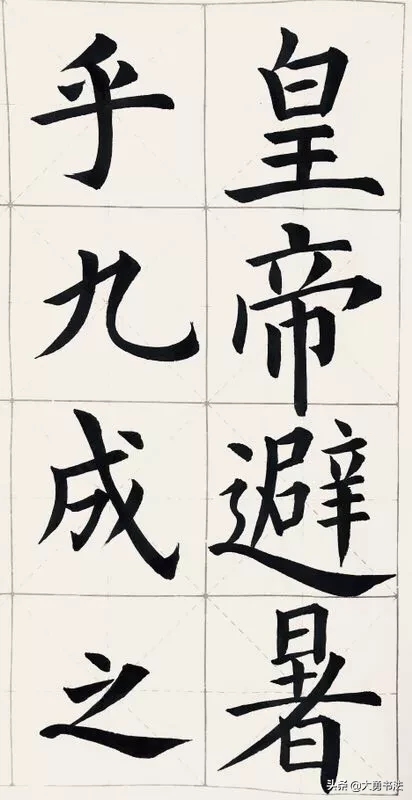 皇帝避暑
乎九成之
头条 @大勇书法